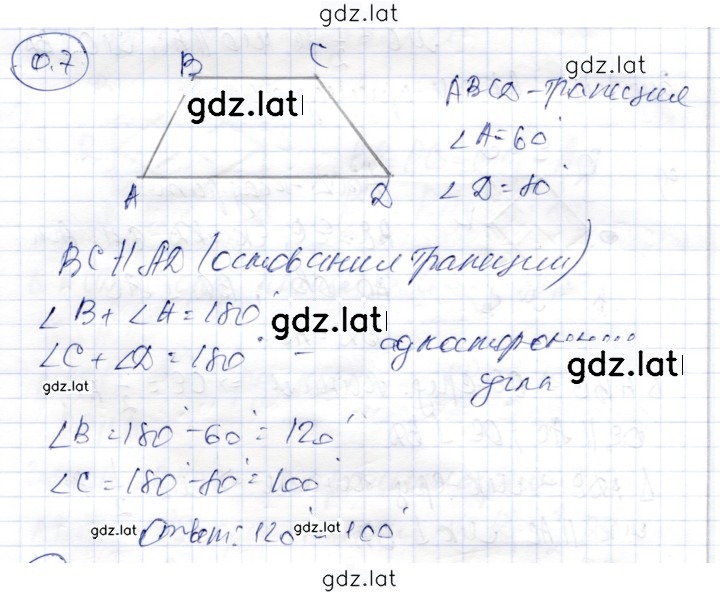 gdz.lat
0.7
B C
gdz.lat
gdz.lat
ABCD - трапеция
∠A = 60°
∠D = 80°
A D
BC || AD (основания трапеции)
∠B + ∠A = 180°
gdz.lat
∠C + ∠D = 180° — односторонние
gdz.lat
gdz.lat
∠B = 180° - 60° = 120°
∠C = 180° - 80° = 100°
gdz.lat Ответ: 120° gdz.lat 100° gdz.lat
gdz.lat